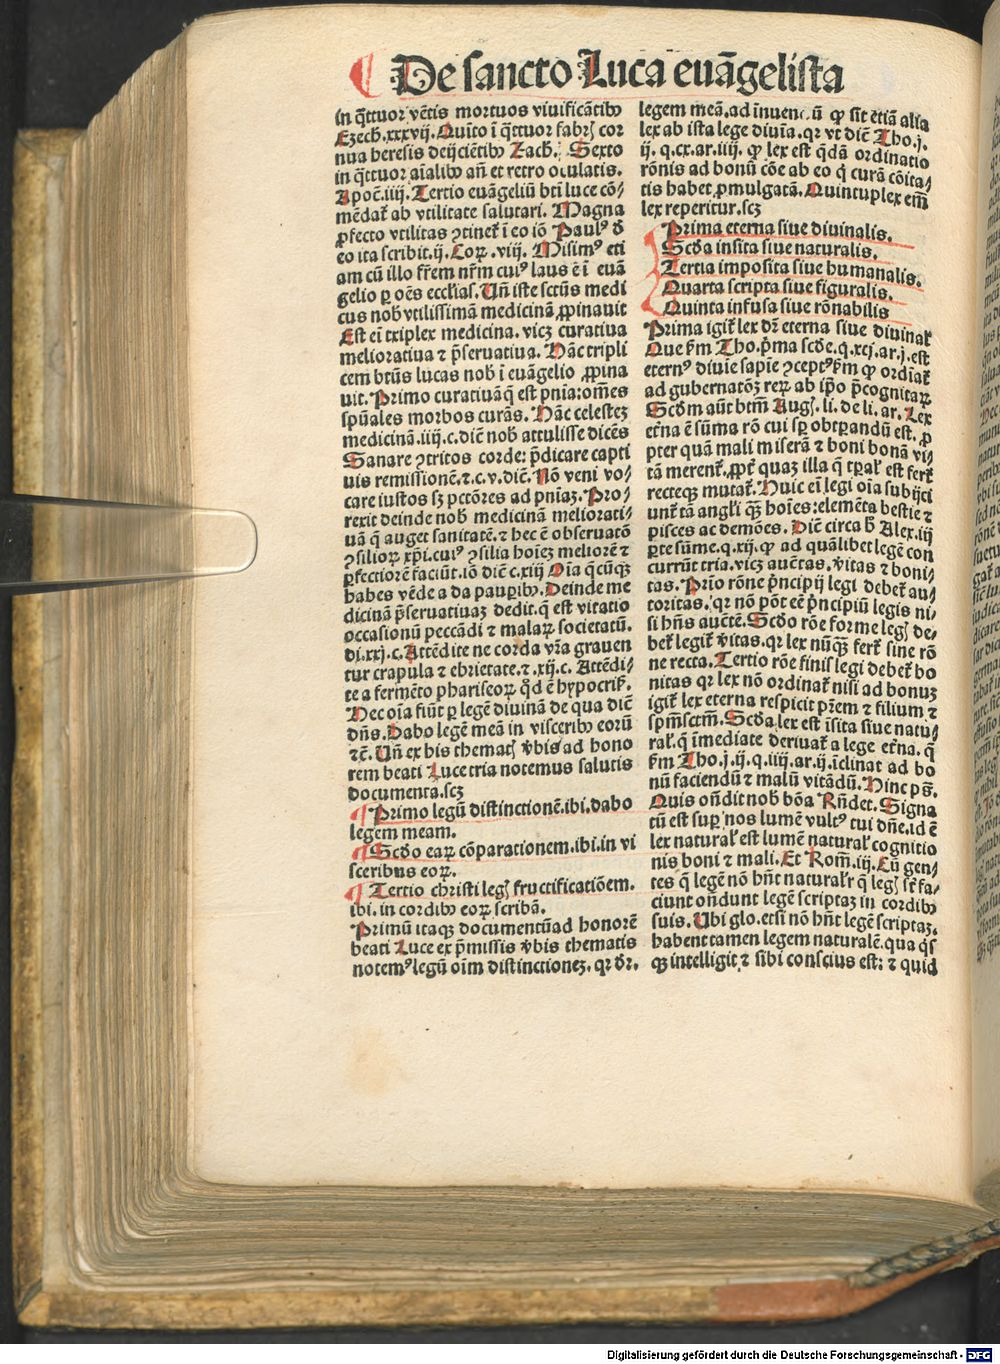 De sancto Luca euāgelista
in q̄ttuor vētis mortuos viuificātibꝰ
Ezech. xxxvij. Quīto ī q̄ttuor fabrꝭ cor
nua heresis deijciētibꝰ Zach. j. Sexto
in q̄ttuor aīalibꝰ añ et retro oculatis.
Apoc̄. iiij. Tertio euāgeliū bt̄i luce cō⸗
mēdat᷑ ab vtilitate salutari. Magna
ꝓfecto vtilitas ꝯtinet᷑ ī eo iō Paulꝰ ꝺ
eo ita scribit. ij. Coꝝ. viij. Misimꝰ eti
am cū illo fr̄em nr̄m cuiꝰ laus ē ī euā
gelio ꝑ oēs eccl̄ias. Uñ iste sctūs medi
cus nob̄ vtilissimā medicinā ꝓpinauit
Est eī triplex medicina. vicꝫ curatiua
melioratiua ⁊ p̄seruatiua. Hāc tripli
cem btūs lucas nob̄ ī euāgelio ꝓpina
uit. Primo curatiuā q̄ est pnīa: om̄es
spūales morbos curās. Hāc celesteꝫ
medicinā. iiij. c. dic̄ nob̄ attulisse dicēs
Sanare ꝯtritos corde: p̄dicare capti
uis remissionē. ⁊. c. v. dic̄. Nō veni vo⸗
care iustos sꝫ pctōres ad pnīaꝫ. Pro⸗
rexit deinde nob̄ medicinā meliorati⸗
uā q̄ auget sanitatē. ⁊ hec ē obseruatō
ꝯsilioꝝ xp̄i. cuiꝰ ꝯsilia hoīeꝫ meliorē ⁊
ꝑfectiorē faciūt. iō dic̄ c. xiij Oīa q̄cūqꝫ
habes vēde ⁊ da pauꝑibꝰ. Deinde me
dicinā p̄seruatiuaꝫ dedit. q̄ est vitatio
occasionū peccādi ⁊ malaꝝ societatū.
di. xxj. c. Attēdite ne corda vr̄a grauen
tur crapula ⁊ ebrietate. ⁊. xij. c. Attēdi⸗
te a fermēto phariseoꝝ qd̄ ē hypocris̄.
Hec oīa fiūt ꝑ legē diuinā de qua dic̄
dn̄s. Dabo legē meā in visceribꝰ eorū
⁊c̄. Uñ ex his thematꝭ v̄bis ad hono
rem beati Luce tria notemus salutis
documenta. scꝫ
Primo legū distinctionē. ibi. dabo
legem meam.
Scd̄o eaꝝ cōparationem. ibi. in vi
sceribus eoꝝ.
Tertio christi legꝭ fructificatiōem.
ibi. in cordibꝰ eoꝝ scribā.
Primū itaqꝫ documentū ad honorē
beati Luce ex p̄missis v̄bis thematis
notemꝰ legū oīm distinctioneꝫ. qꝛ dr̄.
legem meā. ad īuenc. ū ꝙ sit etiā alia
lex ab ista lege diuīa. qꝛ vt dic̄ Tho. j.
ij. q. cx. ar. iiij. ꝙ lex est q̄dā ordinatio
rōnis ad bonū cōe ab eo q̄ curā cōita⸗
tis habet ꝓmulgatā. Quintuplex em̄
lex reperitur. scꝫ
Prima eterna siue diuinalis.
Scd̄a insita siue naturalis.
Tertia imposita siue humanalis.
Quarta scripta siue figuralis.
Quinta infusa siue rōnabilis
Prima igit᷑ lex dr̄ eterna siue diuinal᷑
Que ẜm Tho. p̄ma scd̄e. q. xcj. ar. j. est
eternꝰ diuie sapīe ꝯceptꝰ ẜm ꝙ ordiat᷑
ad gubernatōꝫ reꝝ ab ip̄o p̄cognitaꝝ
Scd̄m aūt btm̄ Augꝭ. li. de li. ar. Lex
et̄na ē sūma rō cui sꝑ obtꝑandū est. ꝓ
pter quā mali miserā ⁊ boni bonā vi⸗
tā merent᷑. ꝓpt᷑ quaꝫ illa q̄ tꝑal᷑ est fert᷑
recteqꝫ mutat᷑. Huic eī legi oīa subijci
unt᷑ tā angl̄i qꝫ hoīes: elemēta bestie ⁊
pisces ac demōes. Dic̄ circa h̄ Alex. iij
ꝑte sūme. q. xij. ꝙ ad quālibet legē con
currūt tria. vicꝫ auc̄tas. v̄itas ⁊ boni⸗
tas. Prīo rōne p̄ncipij legi debet᷑ au⸗
toritas. qꝛ nō pōt eē p̄ncipiū legis ni⸗
si hn̄s auctē. Scd̄o rōe forme legꝭ de⸗
bet᷑ legit᷑ v̄itas. qꝛ lex nūqꝫ fert᷑ sine rō
ne recta. Tertio rōe finis legi debet᷑ bo
nitas qꝛ lex nō ordinat᷑ nisi ad bonuꝫ
igit᷑ lex eterna respicit pr̄em ⁊ filium ⁊
spm̄sctm̄. Scd̄a lex est īsita siue natu⸗
ral᷑. q̄ īmediate deriuat᷑ a lege et̄na. q̄
ẜm Tho. j. ij. q. iiij. ar. ij. īclinat ad bo
nū faciendū ⁊ malū vitādū. Hinc ps̄.
Quis on̄dit nob̄ bōa Rn̄det. Signa
tū est suꝑ nos lumē vultꝰ tui dn̄e. id ē
lex natural᷑ est lumē natural᷑ cognitio
nis boni ⁊ mali. Et Rom̄. iij. Cū gen⸗
tes q̄ legē nō hn̄t natural᷑r q̄ legꝭ sr̄ fa⸗
ciunt on̄dunt legē scriptaꝫ in cordibꝰ
suis. Ubi glo. etsi nō hn̄t legē scriptaꝫ.
habent tamen legem naturalē. qua q̄s
qꝫ intelligit ⁊ sibi conscius est: ⁊ quid
Digitalisierung gefördert durch die Deutsche Forschungsgemeinschaft - DFG